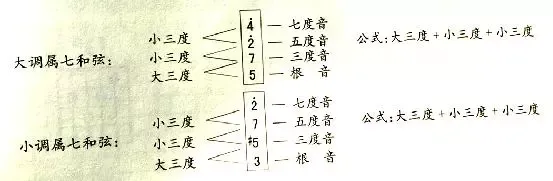 4̇ — 七度音
小三度 2̇ — 五度音 公式:大三度+小三度+小三度
大调属七和弦: 小三度 7 — 三度音
大三度 5 — 根 音
2̇ — 七度音
小三度 7 — 五度音 公式:大三度+小三度+小三度
小调属七和弦: 小三度 #5 — 三度音
大三度 3 — 根 音